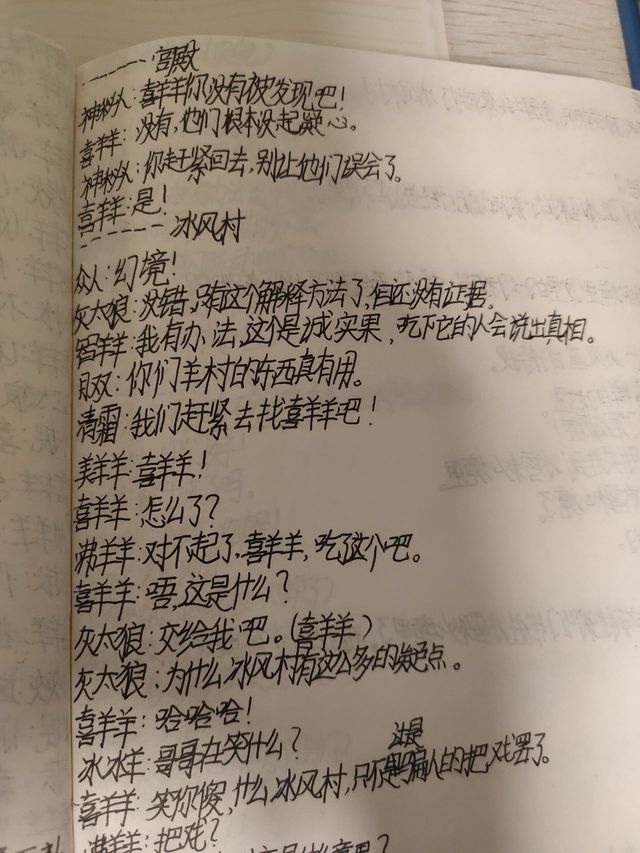 ------宫殿
神秘人:喜羊羊你没有被发现吧!
喜羊羊:没有,他们根本没起疑心。
神秘人:你赶紧回去,别让他们误会了。
喜羊羊:是!
------冰风村
众人:幻境!
灰太狼:没错,只有这个解释方法了,但还没有证据。
智羊羊:我有办法,这个是诚实果,吃下它的人会说出真相。
月双:你们羊村的东西真有用。
清霜:我们赶紧去找喜羊羊吧!
美羊羊:喜羊羊!
喜羊羊:怎么了?
沸羊羊:对不起了,喜羊羊,吃了这个吧。
喜羊羊:唔,这是什么?
灰太狼:交给我吧。(喜羊羊)
灰太狼:为什么冰风村有这么多的疑点。
喜羊羊:哈哈哈!
冰冰羊:哥哥在笑什么?
喜羊羊:笑你傻,什么冰风村,只不过是骗人的把戏罢了。
沸羊羊:把戏?